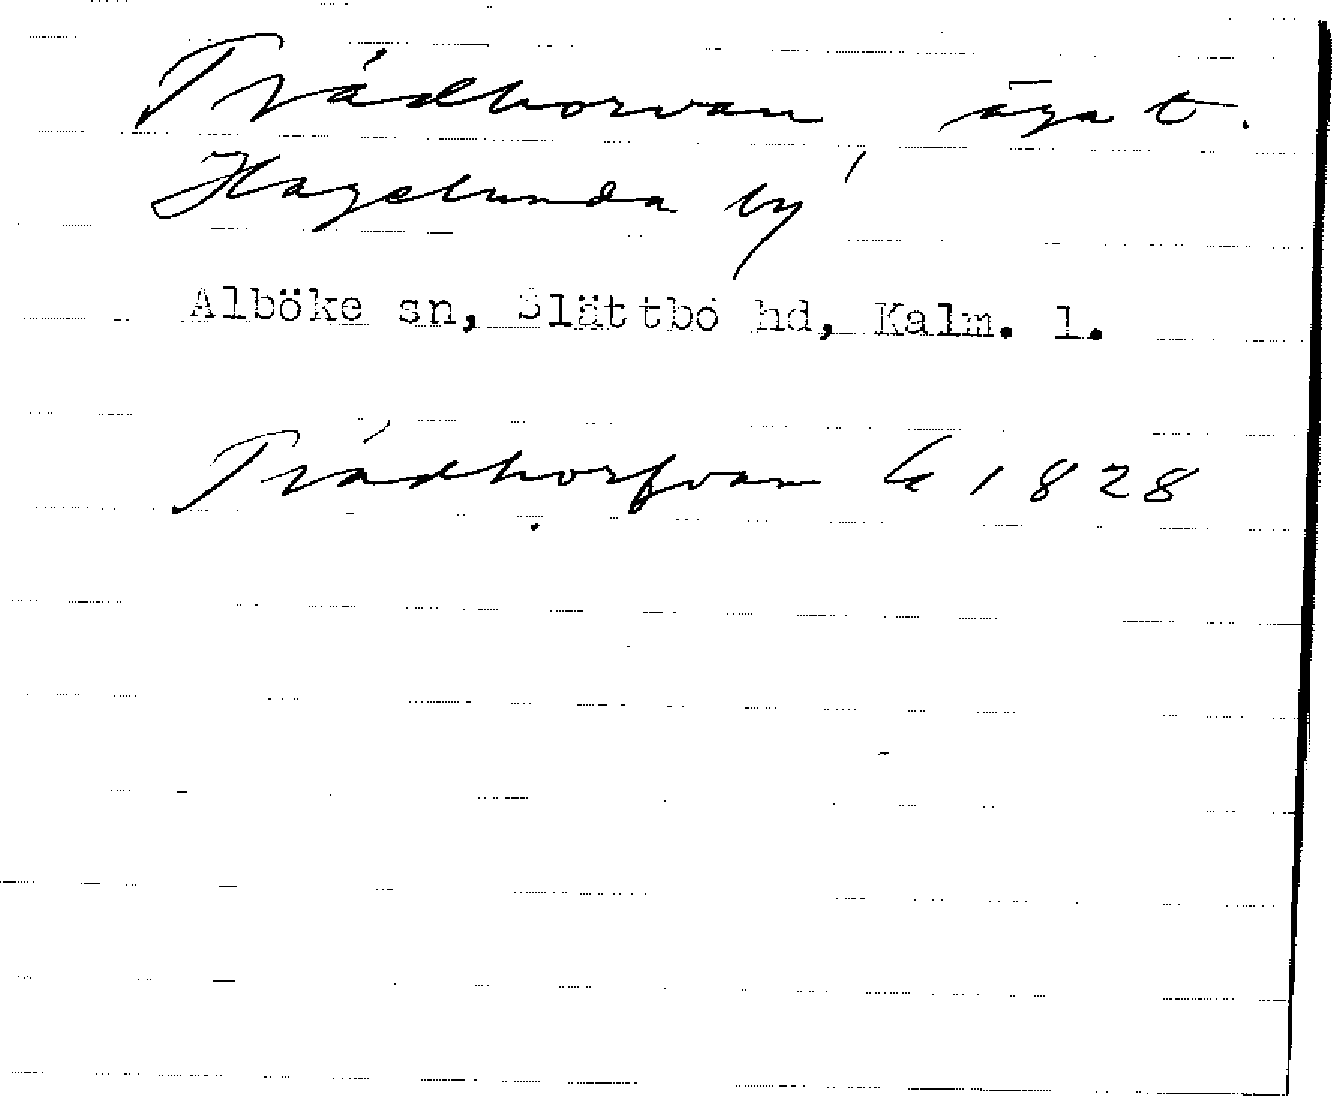 Trådhorvan, äga t.
Hagelunda by
Alböke sn, Slättbo hd, Kalm. l.
Trådhorfvan La 1828